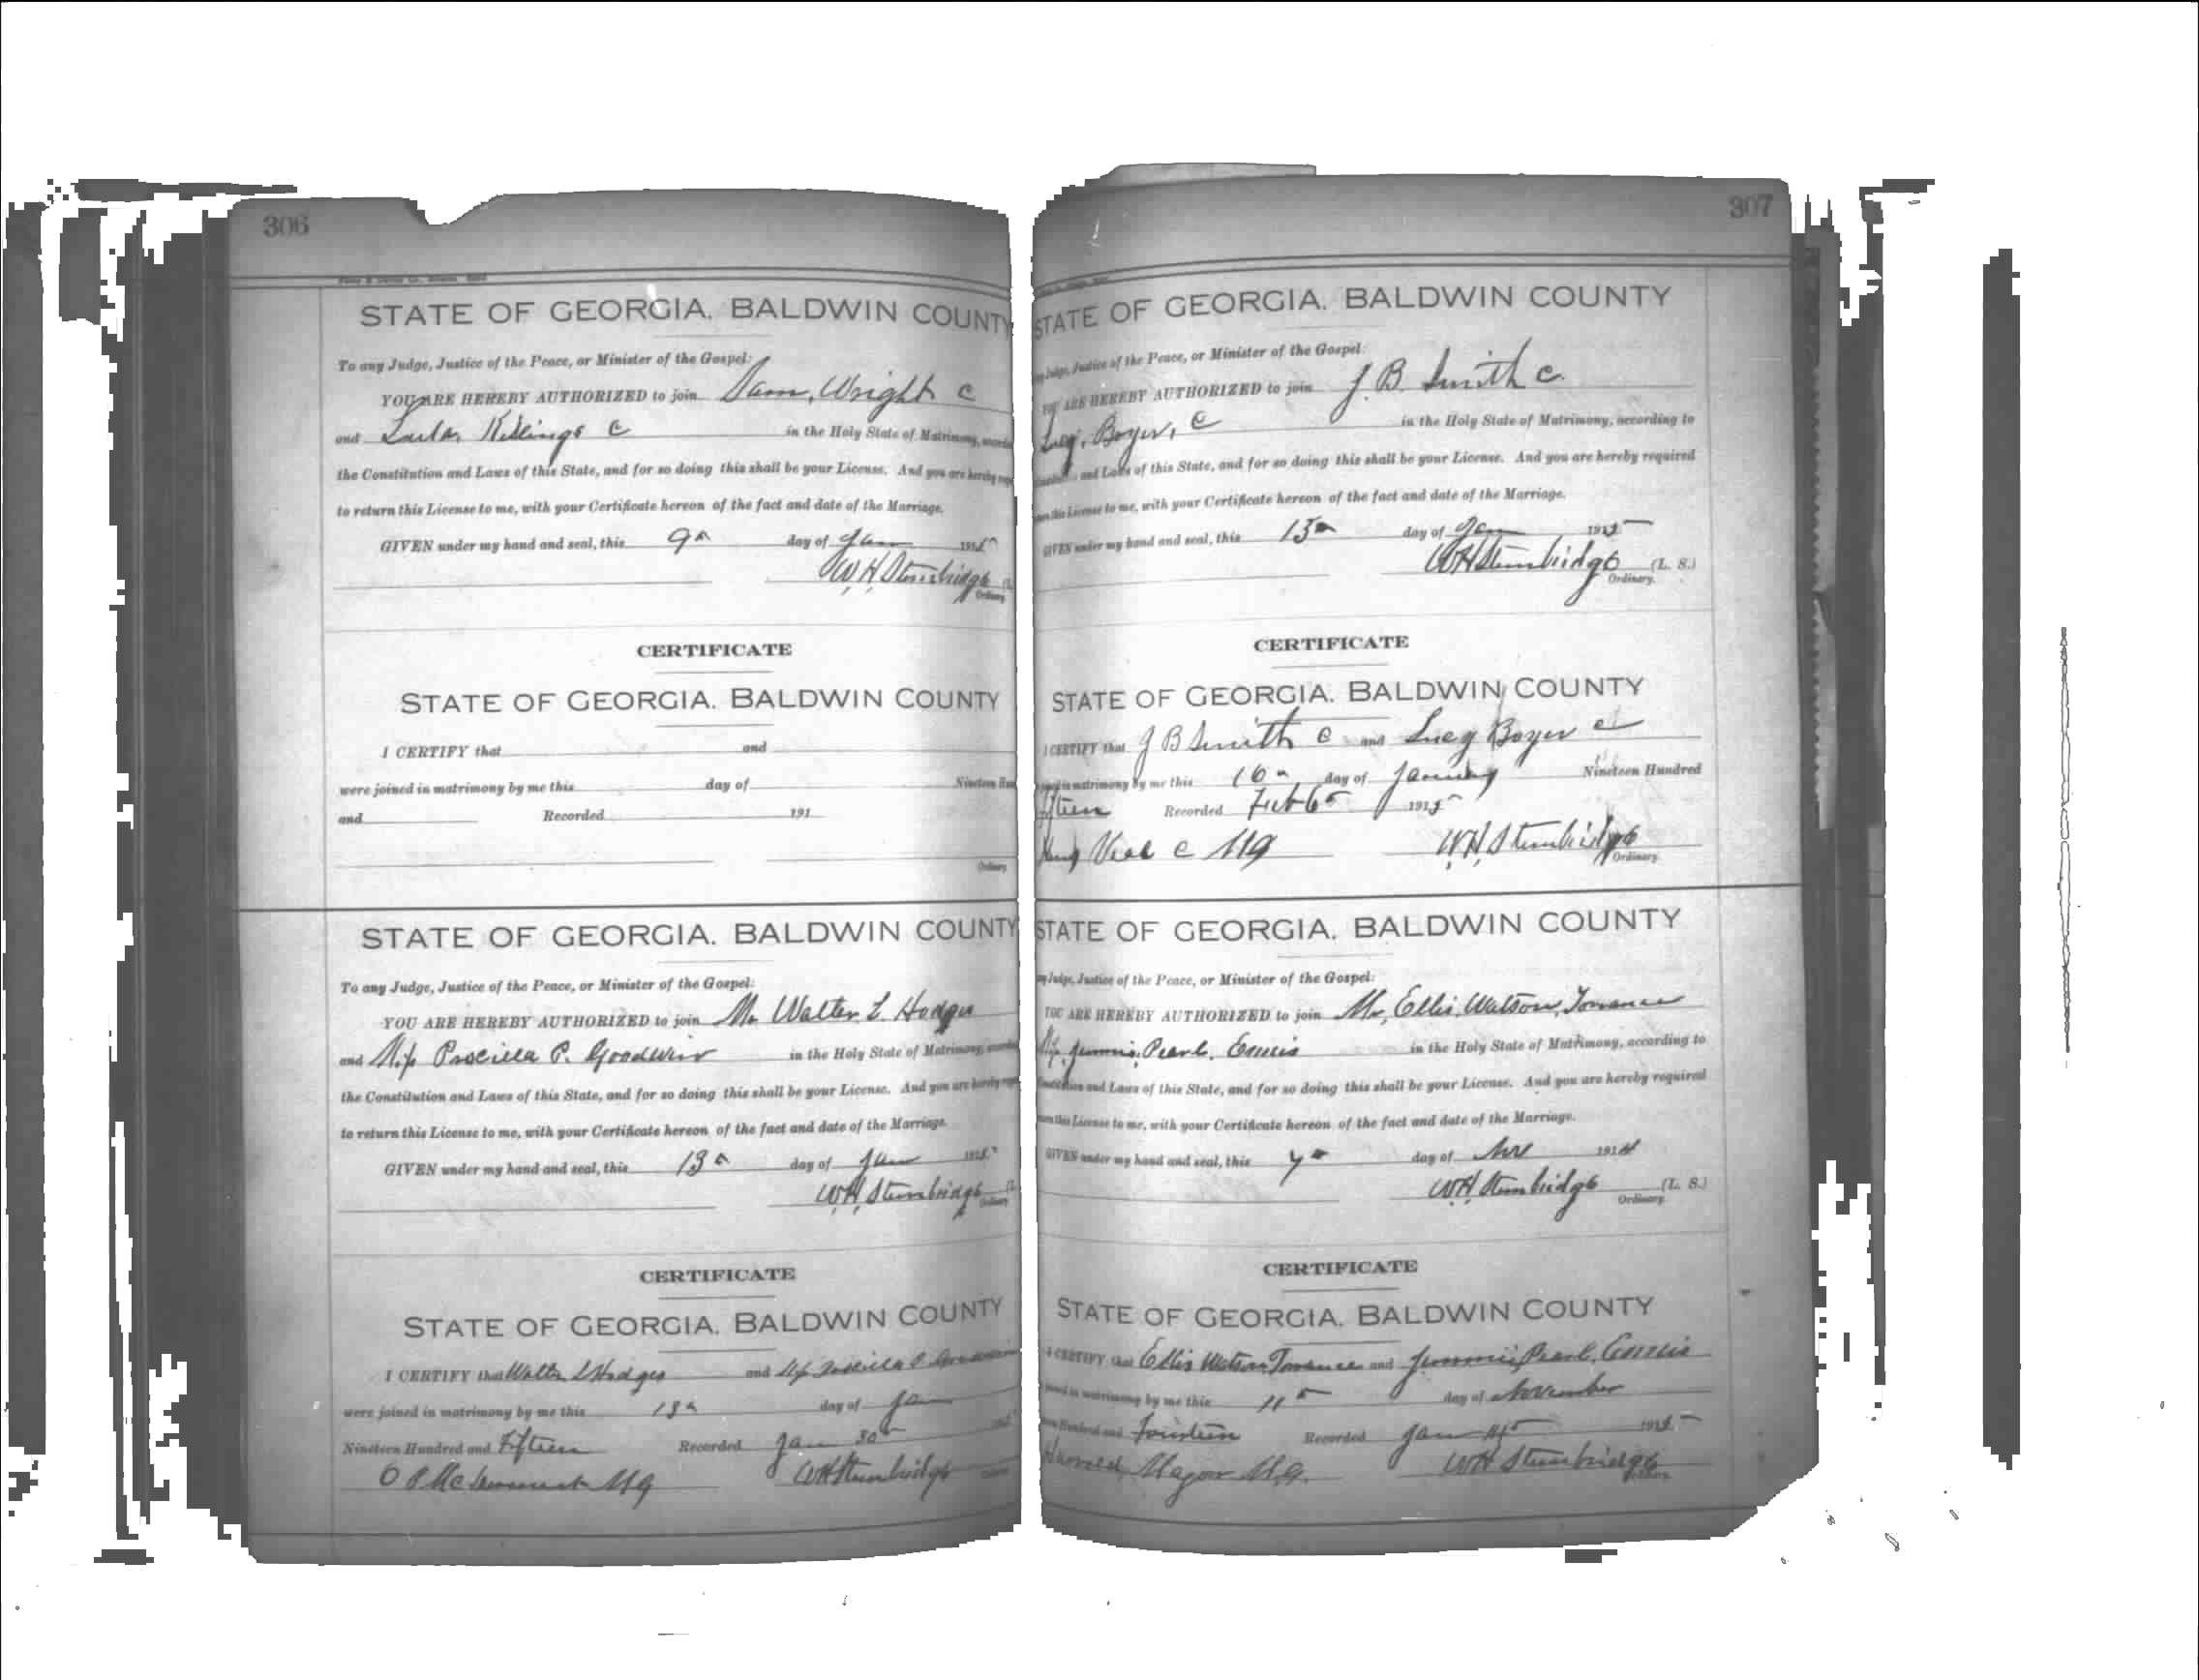 306
STATE OF GEORGIA. BALDWIN COUNTY
To any Judge, Justice of the Peace, or Minister of the Gospel:
YOU ARE HEREBY AUTHORIZED to join Sam, Wright c
and Killings c in the Holy State of Matrimony,
the Constitution and Laws of this State, and for so doing this shall be your License. And you are hereby
to return this License to me, with your Certificate hereon of the fact and date of the Marriage.
GIVEN under my hand and seal, this 9 day of Jan 1915
W. H. Stembridge
Ordinary
CERTIFICATE
STATE OF GEORGIA. BALDWIN COUNTY
I CERTIFY that and
were joined in matrimony by me this day of Nineteen
and Recorded 191
Ordinary
STATE OF GEORGIA. BALDWIN COUNTY
To any Judge, Justice of the Peace, or Minister of the Gospel:
YOU ARE HEREBY AUTHORIZED to join Mr Walter L. Hodges
and P. Goodwin in the Holy State of Matrimony,
the Constitution and Laws of this State, and for so doing this shall be your License. And you are hereby
to return this License to me, with your Certificate hereon of the fact and date of the Marriage.
GIVEN under my hand and seal, this 13 day of Jan 1915
W. H. Stembridge
CERTIFICATE
STATE OF GEORGIA. BALDWIN COUNTY
I CERTIFY that Walter L Hodges and
were joined in matrimony by me this 13 day of Jan
Nineteen Hundred and Fifteen Recorded Jan 30
M G W H Stembridge
307
STATE OF GEORGIA. BALDWIN COUNTY
Judge, Justice of the Peace, or Minister of the Gospel:
YOU ARE HEREBY AUTHORIZED to join J. B. Smith c.
Lucy, Boyer, c in the Holy State of Matrimony, according to
and Laws of this State, and for so doing this shall be your License. And you are hereby required
this License to me, with your Certificate hereon of the fact and date of the Marriage.
GIVEN under my hand and seal, this 15 day of Jan 1915
W H Stembridge (L. S.)
Ordinary.
CERTIFICATE
STATE OF GEORGIA. BALDWIN COUNTY
I CERTIFY that J B Smith c and Lucy Boyer c
in matrimony by me this 16 day of January Nineteen Hundred
fifteen Recorded Feb 6 1915
c M G W. H. Stembridge
Ordinary
STATE OF GEORGIA. BALDWIN COUNTY
Judge, Justice of the Peace, or Minister of the Gospel:
YOU ARE HEREBY AUTHORIZED to join Mr, Ellis, Watson, Torrance
Jimmie, Pearl, Ennis in the Holy State of Matrimony, according to
and Laws of this State, and for so doing this shall be your License. And you are hereby required
this License to me, with your Certificate hereon of the fact and date of the Marriage.
GIVEN under my hand and seal, this day of Nov 1914
W H Stembridge (L. S.)
Ordinary.
CERTIFICATE
STATE OF GEORGIA. BALDWIN COUNTY
I CERTIFY that Ellis Watson Torrance and Jimmie, Pearl, Ennis
in matrimony by me this 11 day of November
Hundred and Fourteen Recorded Jan 1915
M.G. W H Stembridge